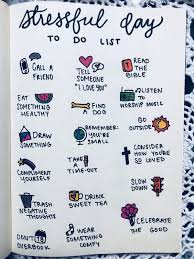 stressful day
TO DO LIST
CALL A
FRIEND
TELL
SOMEONE
"I LOVE
YOU"
READ
THE
BIBLE
EAT
SOMETHING
HEALTHY
FIND
A DOG
LISTEN TO
WORSHIP MUSIC
DRAW
SOMETHING
REMEMBER:
YOU'RE
SMALL
GO
OUTSIDE
COMPLIMENT
YOURSELF
TAKE
A
TIME-OUT
CONSIDER
HOW YOU'RE
SO LOVED
TRASH
NEGATIVE
THOUGHTS
DRINK
SWEET TEA
SLOW
DOWN
DON'T
OVERBOOK
WEAR
SOMETHING
COMFY
CELEBRATE
THE GOOD